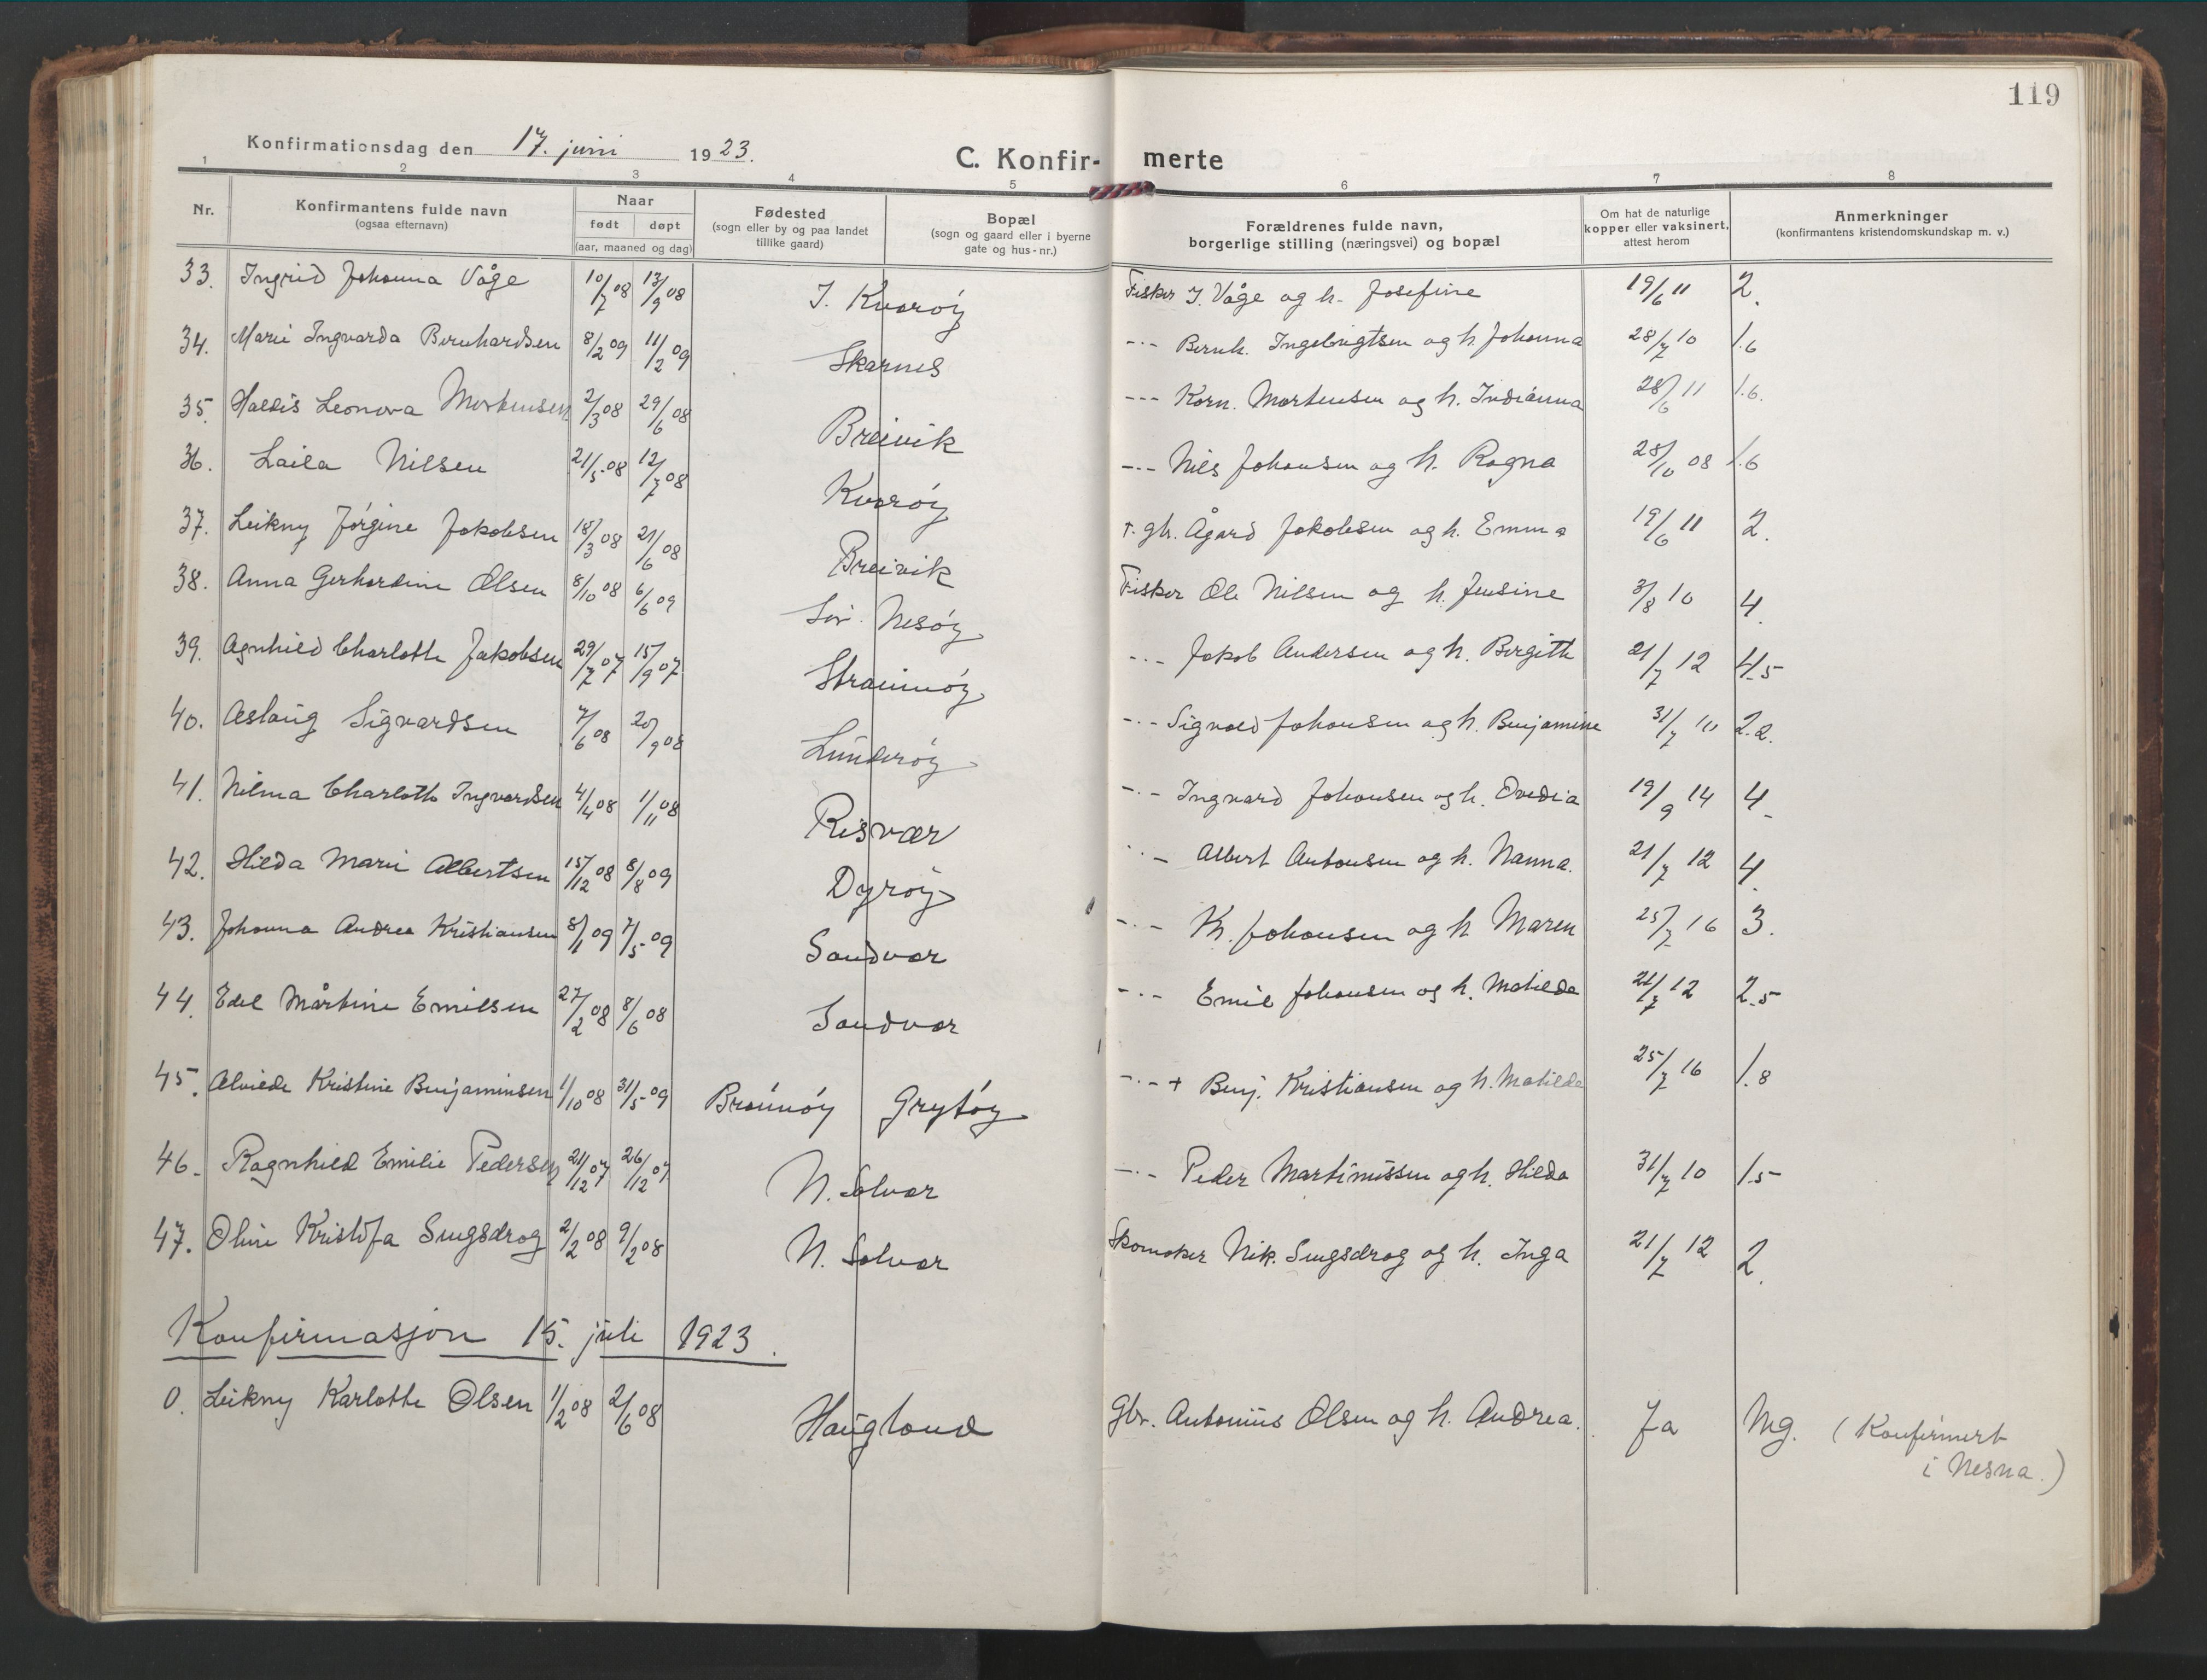 119
Konfirmationsdag den 17. juni 1923.
C. Konfir- merte
1 2 3 4 5 6 7 8
Nr. Konfirmantens fulde navn (ogsaa efternavn) Naar født døpt (aar, maaned og dag) Fødested (sogn eller by og paa landet tillike gaard) Bopæl (sogn og gaard eller i byerne gate og hus-nr.) Forældrenes fulde navn, borgerlige stilling (næringsvei) og bopæl Om hat de naturlige kopper eller vaksinert, attest herom Anmerkninger (konfirmantens kristendomskundskap m. v.)
33. Ingrid Johanna Våge 10/7 08 13/9 08 I. Kvarøy Fisker J. Våge og h. Josefine 19/6 11 2.
34. Marie Ingvarda Bernhardsen 8/2 09 11/2 09 Skarnes -.- Bernh. Ingebrigtsen og h. Johanna 28/7 10 1.6
35. Haldis Leonora Mortensen 2/3 08 29/6 08 Breivik --- Korn. Mortensen og h. Indianna 28/6 11 1.6.
36. Laila Nilsen 21/5 08 12/7 08 Kvarøy -.- Nils Johansen og h. Ragna 28/10 08 1.6
37. Leikny Jørgine Jakobsen 18/3 08 21/6 08 Breivik gb. Ågard Jakobsen og h. Emma 19/6 11 2.
38. Anna Gerhardine Olsen 8/10 08 6/6 09 Sør. Nesøy Fisker Ole Nilsen og h. Jensine 3/8 10 4.
39. Agnhild Charlotte Jakobsen 29/7 07 15/9 07 Straumøy -.- Jakob Andersen og h. Bergitte 21/7 12 4.5
40. Aslaug Sigvardsen 7/6 08 20/9 08 Lunderøy -.- Sigvald Johansen og h. Benjamine 31/7 10 2.2.
41. Nilma Charlotte Ingvardsen 4/4 08 1/11 08 Risvær -.- Ingvard Johansen og h. Ovedia 19/9 14 4.
42. Hilda Marie Albertsen 15/12 08 8/8 09 Dyrøy -.- Albert Antonsen og h. Nanna. 21/7 12 4.
43. Johanna Andrea Kristiansen 8/1 09 7/5 09 Sandvær -.- Kr. Johansen og h Maren 25/7 16 3.
44. Edel Mårtine Emilsen 27/2 08 8/6 08 Sandvær -.- Emil Johansen og h. Matilde 21/7 12 2.5
45. Alvilde Kristine Benjaminsen 1/10 08 31/5 09 Brønnøy Grytøy -.- + Benj. Kristiansen og h. Matilde 25/7 16 1.8
46. Ragnhild Emilie Pedersen 21/12 07 26/12 07 N. Solvær -.- Peder Martinussen og h. Hilda 31/7 10 1.5
47. Oline Kristofa Sengsdrag 2/2 08 9/2 08 N. Solvær Skomaker Nik. Sengsdrag og h. Inga 21/7 12 2.
Konfirmasjon 15. juli 1923.
0. Leikny Karlotte Olsen 1/2 08 2/6 08 Haugland Gbr. Antonius Olsen og h. Andrea. Ja Mg. (Konfirmert
i Nesna.)